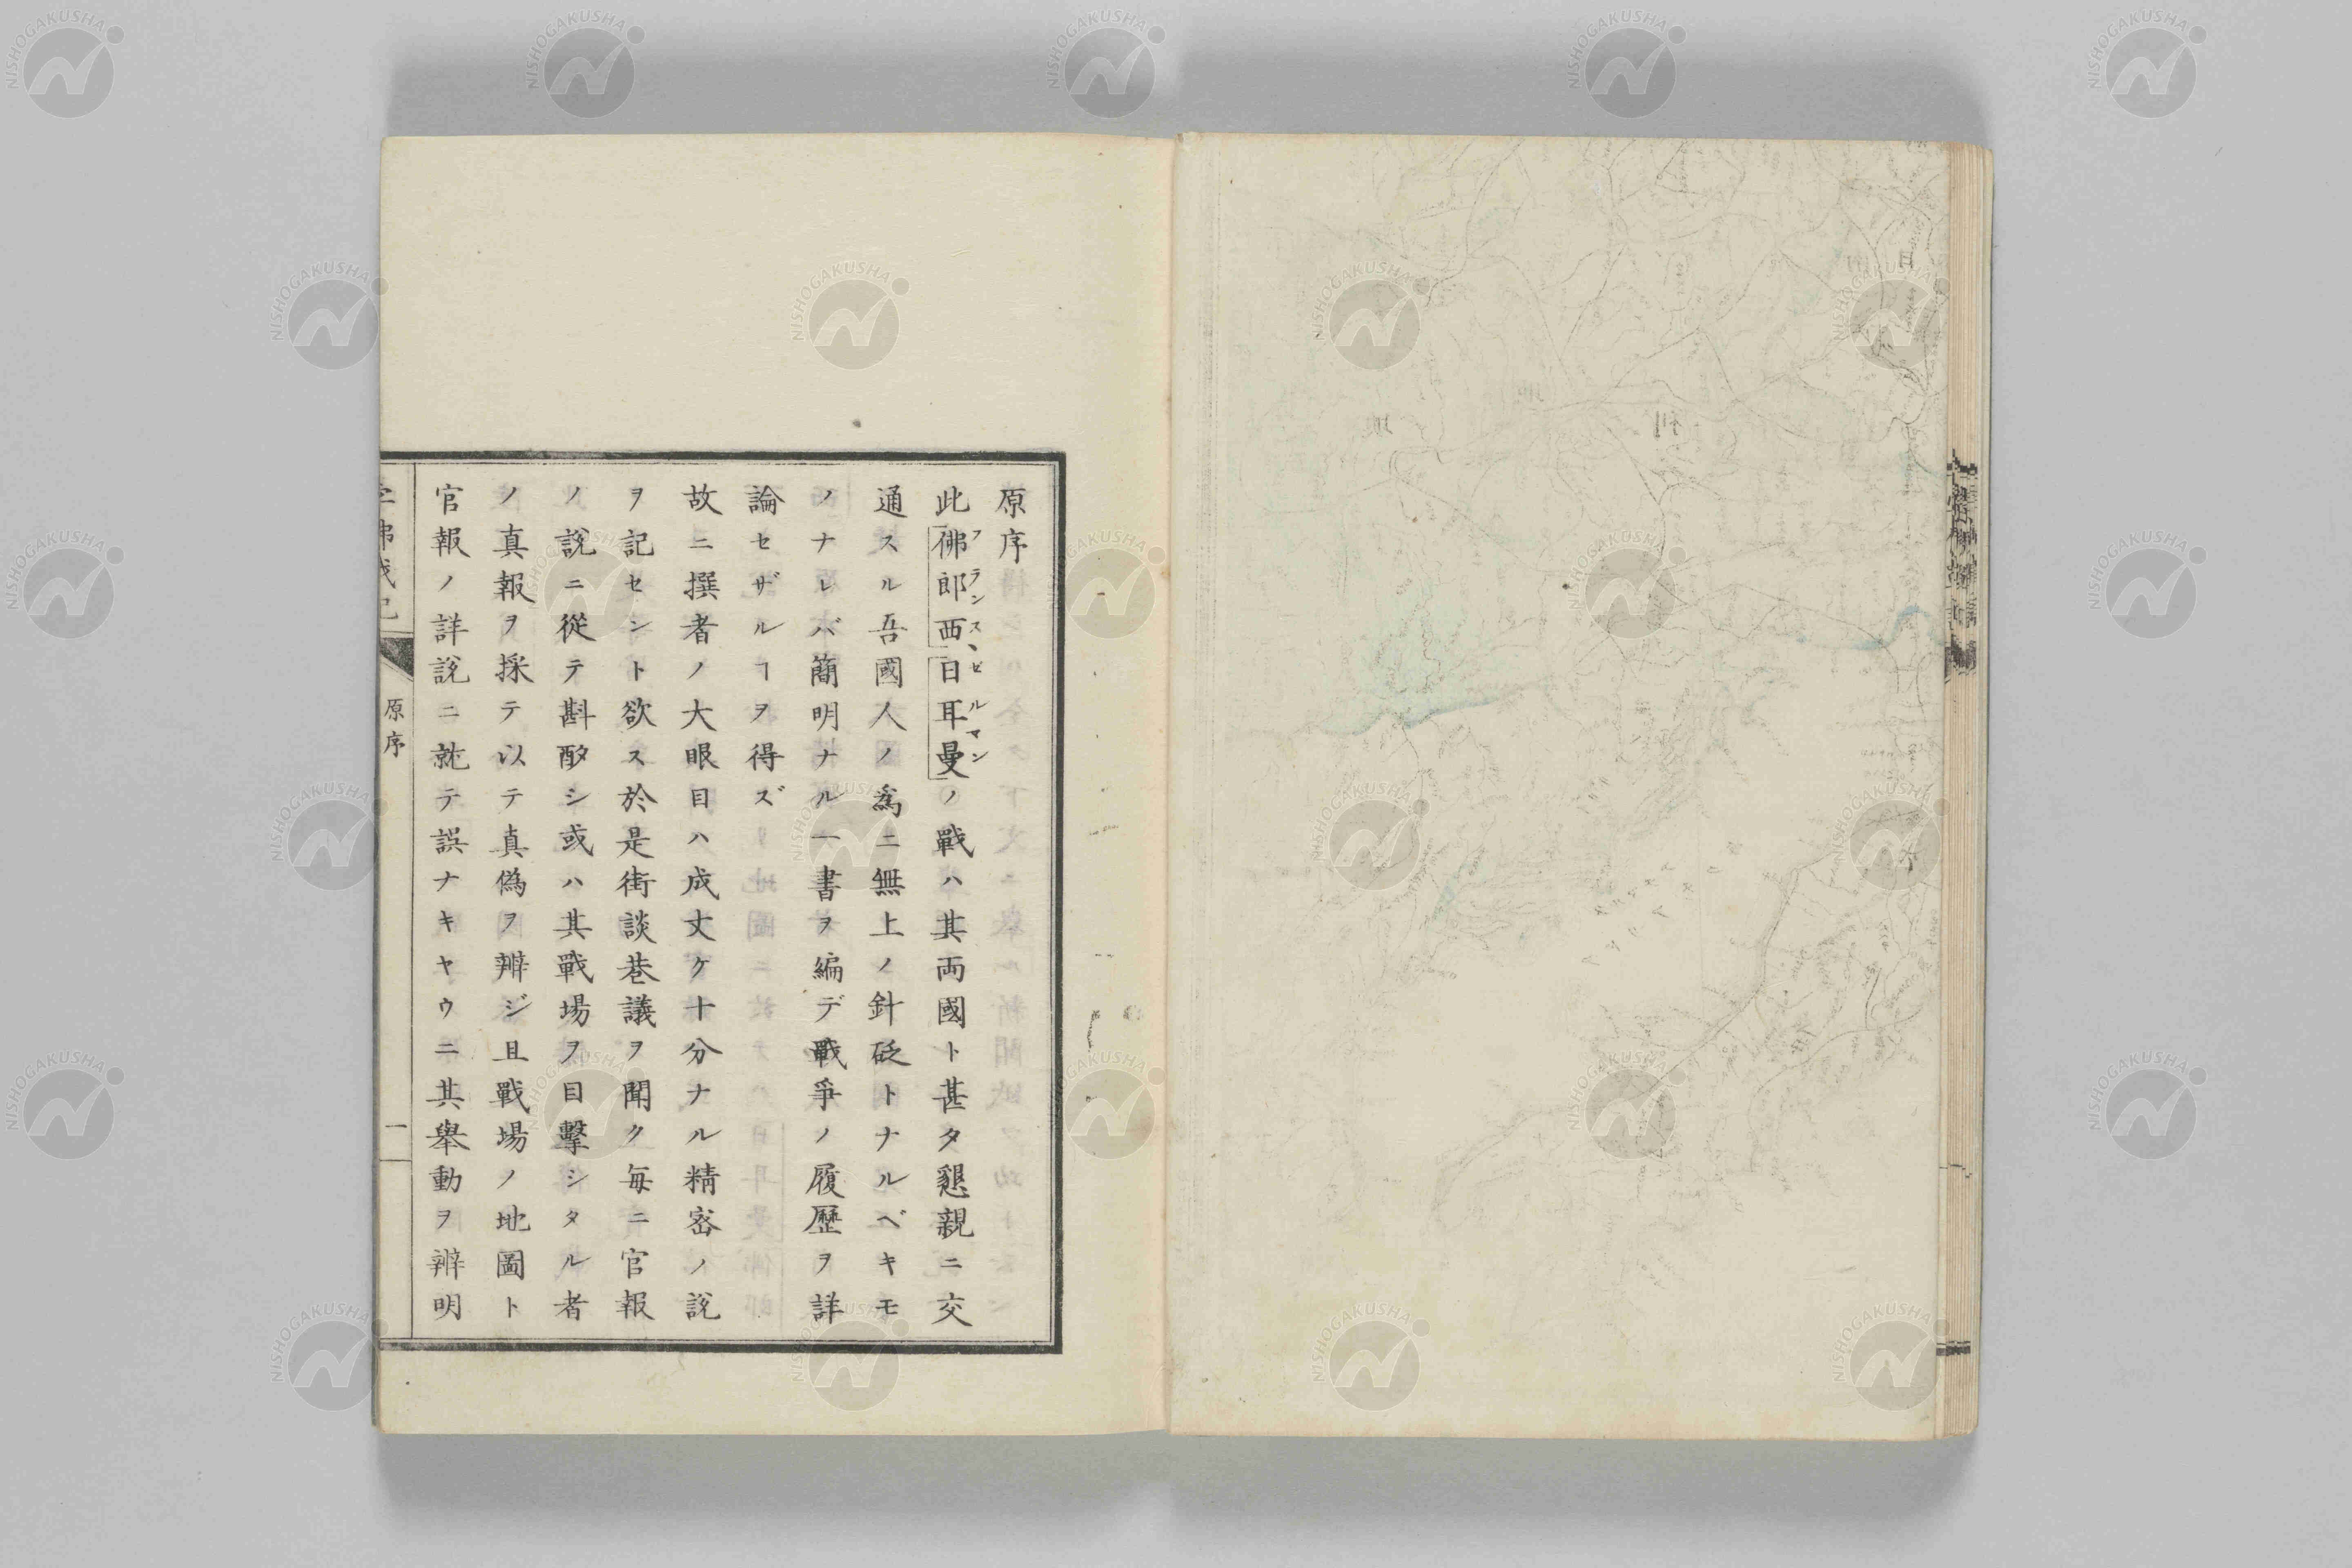 原序
此佛郎西、日耳曼ノ戰ハ其両國ト甚タ懇親ニ交
フランス ゼルマン
通スル吾國人ノ爲ニ無上ノ針砭トナルベキモ
ノナレバ簡明ナル一書ヲ編デ戰爭ノ履歷ヲ詳
論セザルヿヲ得ズ
故ニ撰者ノ大眼目ハ成丈ケ十分ナル精密ノ說
ヲ記セント欲ス於是街談巷議ヲ聞ク毎ニ官報
ノ說ニ從テ斟酌シ或ハ其戰場ヲ目擊シタル者
ノ真報ヲ採テ以テ真偽ヲ辨ジ且戰場ノ地圖ト
官報ノ詳說ニ就テ誤ナキヤウニ其舉動ヲ辨明
原序
一
NISHOGAKUSHA